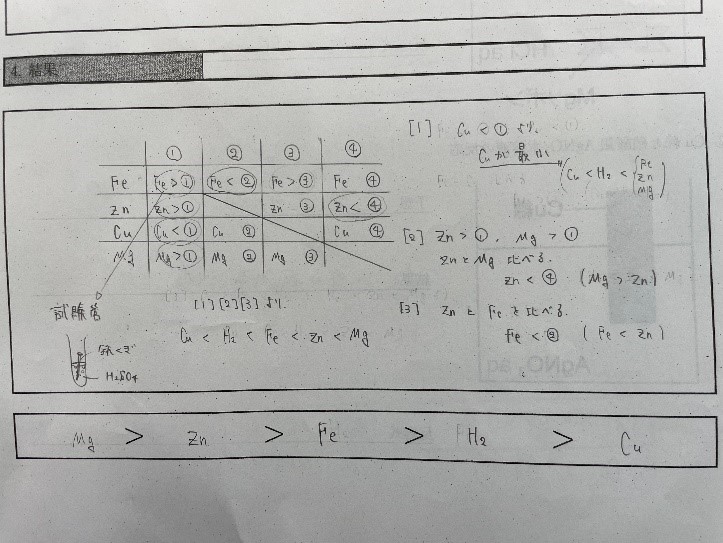 4. 結果
① ② ③ ④
Fe Fe>① Fe<② Fe>③ Fe ④
Zn Zn>① Zn ③ Zn<④
Cu Cu<① Cu ② Cu ④
Mg Mg>① Mg ② Mg ③
試験管
H₂SO₄
[1][2][3] より.
Cu < H₂ < Fe < Zn < Mg
[1] Cu < ① より.
Cu が 最小
(Cu < H₂ < { Fe
Zn
Mg )
[2] Zn > ①, Mg > ①
Zn と Mg 比べる.
Zn < ④ (Mg > Zn)
[3] Zn と Fe を 比べる.
Fe < ② (Fe < Zn)
Mg > Zn > Fe > H₂ > Cu